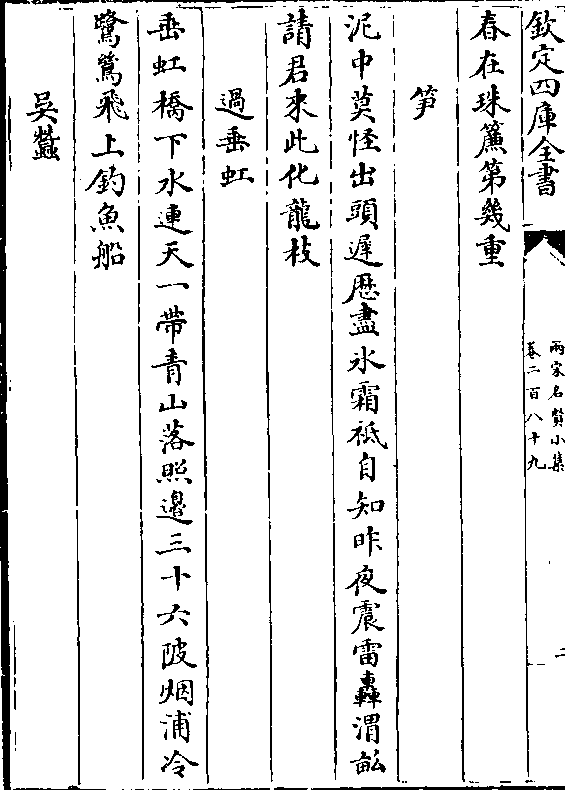 欽定四庫全書
兩宋名賢小集
卷二百八十九
二
春在珠簾第幾重
筍
泥中莫怪出頭遲歴盡氷霜祗自知昨夜震雷轟渭畝
請君来此化龍枝
過垂虹
垂虹橋下水連天一帶青山落照邉三十六陂烟浦冷
鷺鶿飛上釣魚船
吳蠶